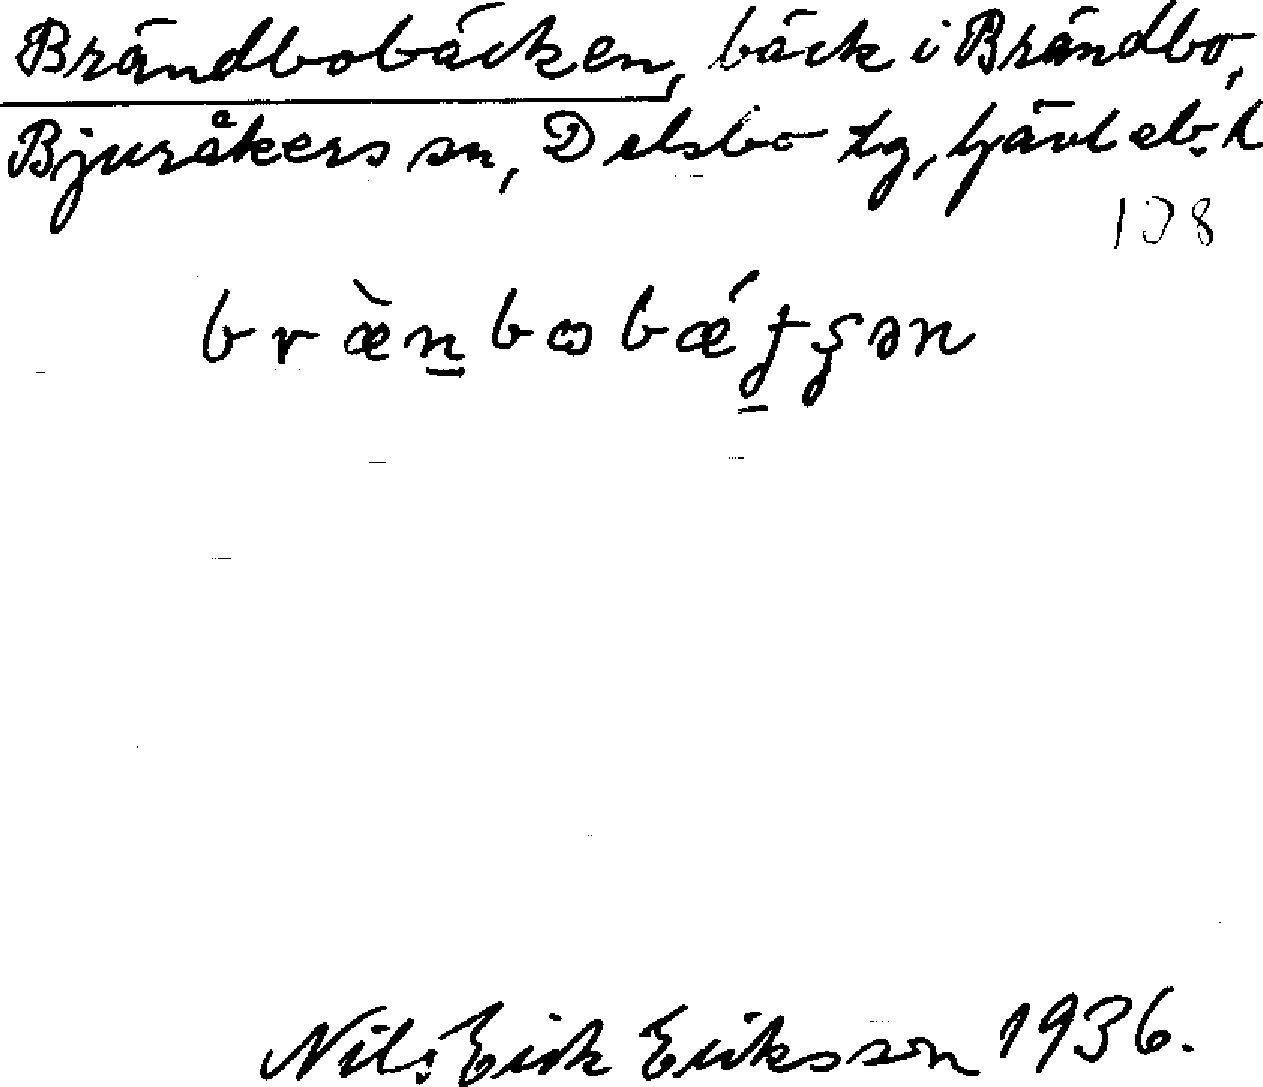 Brändbobäcken, bäck i Brändbo,
Bjuråkers sn, Delsbo tg, Gävleb. l
108
bræ̀n̲bωbǽt̲ʂən
Nils Erik Eriksson 1936.